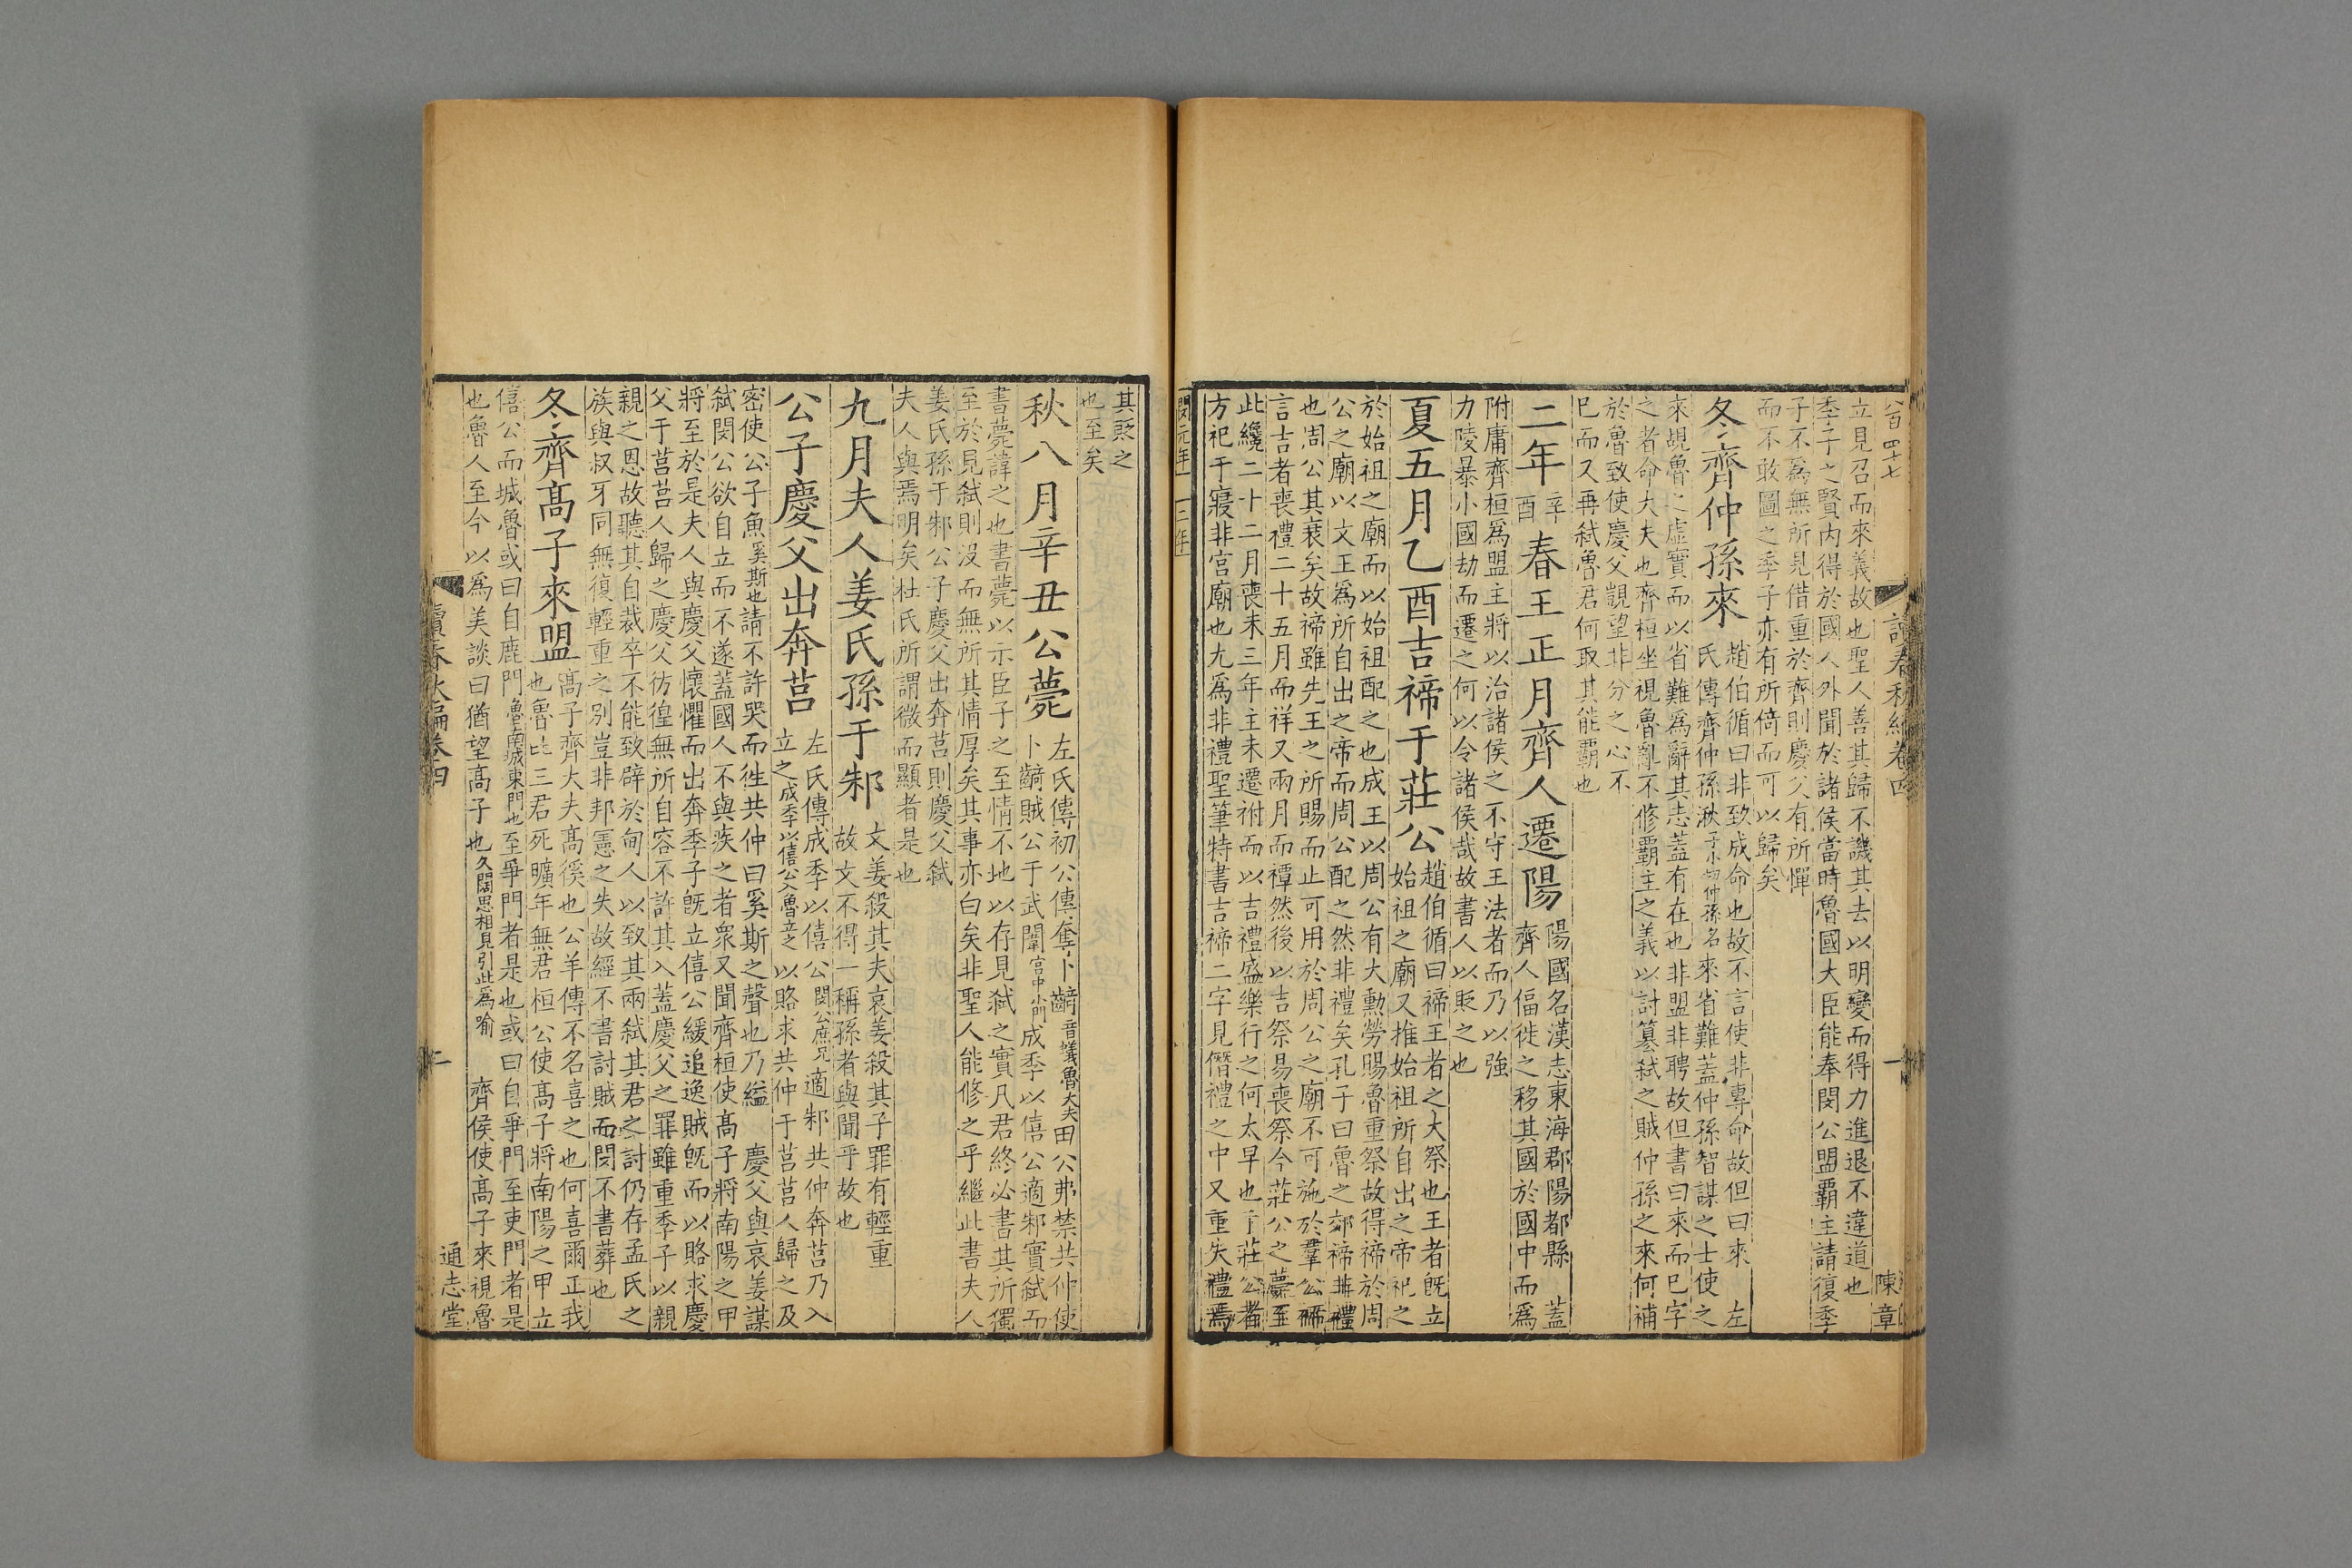 八百四十七
讀春秋編卷四
一
陳章
立見召而來義故也聖人善其歸不譏其去以明變而得力進退不違道也
季子之賢內得於國人外聞於諸侯當時魯國大臣能奉閔公盟霸主請復季
子不爲無所見借重於齊則慶父有所憚
而不敢圖之季子亦有所倚而可以歸矣
冬齊仲孫來
趙伯循曰非致成命也故不言使非專命故但曰來 左
氏傳齊仲孫湫子小切仲孫名來省難蓋仲孫智謀之士使之
來覘魯之虛實而以省難爲辭其志蓋有在也非盟非聘故但書曰來而已字
之者命大夫也齊桓坐視魯亂不修霸主之義以討簒弑之賊仲孫之來何補
於魯致使慶父覬望非分之心不
已而又再弑魯君何取其能霸也
二年辛酉春王正月齊人遷陽
陽國名漢志東海郡陽都縣 蓋
齊人偪徙之移其國於國中而爲
附庸齊桓爲盟主將以治諸侯之不守王法者而乃以強
力陵暴小國劫而遷之何以令諸侯哉故書人以貶之也
夏五月乙酉吉禘于莊公
趙伯循曰禘王者之大祭也王者旣立
始祖之廟又推始祖所自出之帝祀之
於始祖之廟而以始祖配之也成王以周公有大勳勞賜魯重祭故得禘於周
公之廟以文王爲所自出之帝而周公配之然非禮矣孔子曰魯之郊禘非禮
也周公其衰矣故禘雖先王之所賜而止可用於周公之廟不可施於羣公禘
言吉者喪禮二十五月而祥又兩月而禫然後以吉祭易喪祭今莊公之薨至
此纔二十二月喪未三年主未遷祔而以吉禮盛樂行之何太早也于莊公者
方祀于寢非宮廟也尢爲非禮聖筆特書吉禘二字見僭禮之中又重失禮焉
閔元年 二年
其貶之
也至矣
秋八月辛丑公薨
左氏傳初公傅奪卜齮音蟻魯大夫田公弗禁共仲使
卜齮賊公于武闈宮中小門成季以僖公適邾實弑而
書薨諱之也書薨以示臣子之至情不地以存見弑之實凡君終必書其所獨
至於見弑則沒而無所其情厚矣其事亦白矣非聖人能修之乎繼此書夫人
姜氏孫于邾公子慶父出奔莒則慶父弑
夫人與焉明矣杜氏所謂微而顯者是也
九月夫人姜氏孫于邾
文姜殺其夫哀姜殺其子罪有輕重
故文不得一稱孫者與聞乎故也
公子慶父出奔莒
左氏傳成季以僖公閔公庶兄適邾共仲奔莒乃入
立之成季以僖公入魯立之以賂求共仲于莒莒人歸之及
密使公子魚奚斯也請不許哭而徃共仲曰奚斯之聲也乃縊 慶父與哀姜謀
弑閔公欲自立而不遂蓋國人不與疾之者衆又聞齊桓使高子將南陽之甲
將至於是夫人與慶父懷懼而出奔季子旣立僖公緩追逸賊旣而以賂求慶
父于莒莒人歸之慶父彷徨無所自容不許其入蓋慶父之罪雖重季子以親
親之恩故聽其自裁卒不能致辟於甸人以致其兩弑其君之討仍存孟氏之
族與叔牙同無復輕重之別豈非邦憲之失故經不書討賊而閔不書葬也
冬齊高子來盟
高子齊大夫高徯也公羊傳不名喜之也何喜爾正我
也魯比三君死曠年無君桓公使高子將南陽之甲立
僖公而城魯或曰自鹿門魯南城東門也至爭門者是也或曰自爭門至吏門者是
也魯人至今以爲美談曰猶望高子也久闊思相見引此爲喻 齊侯使高子來視魯
讀春秋編卷四
二
通志堂